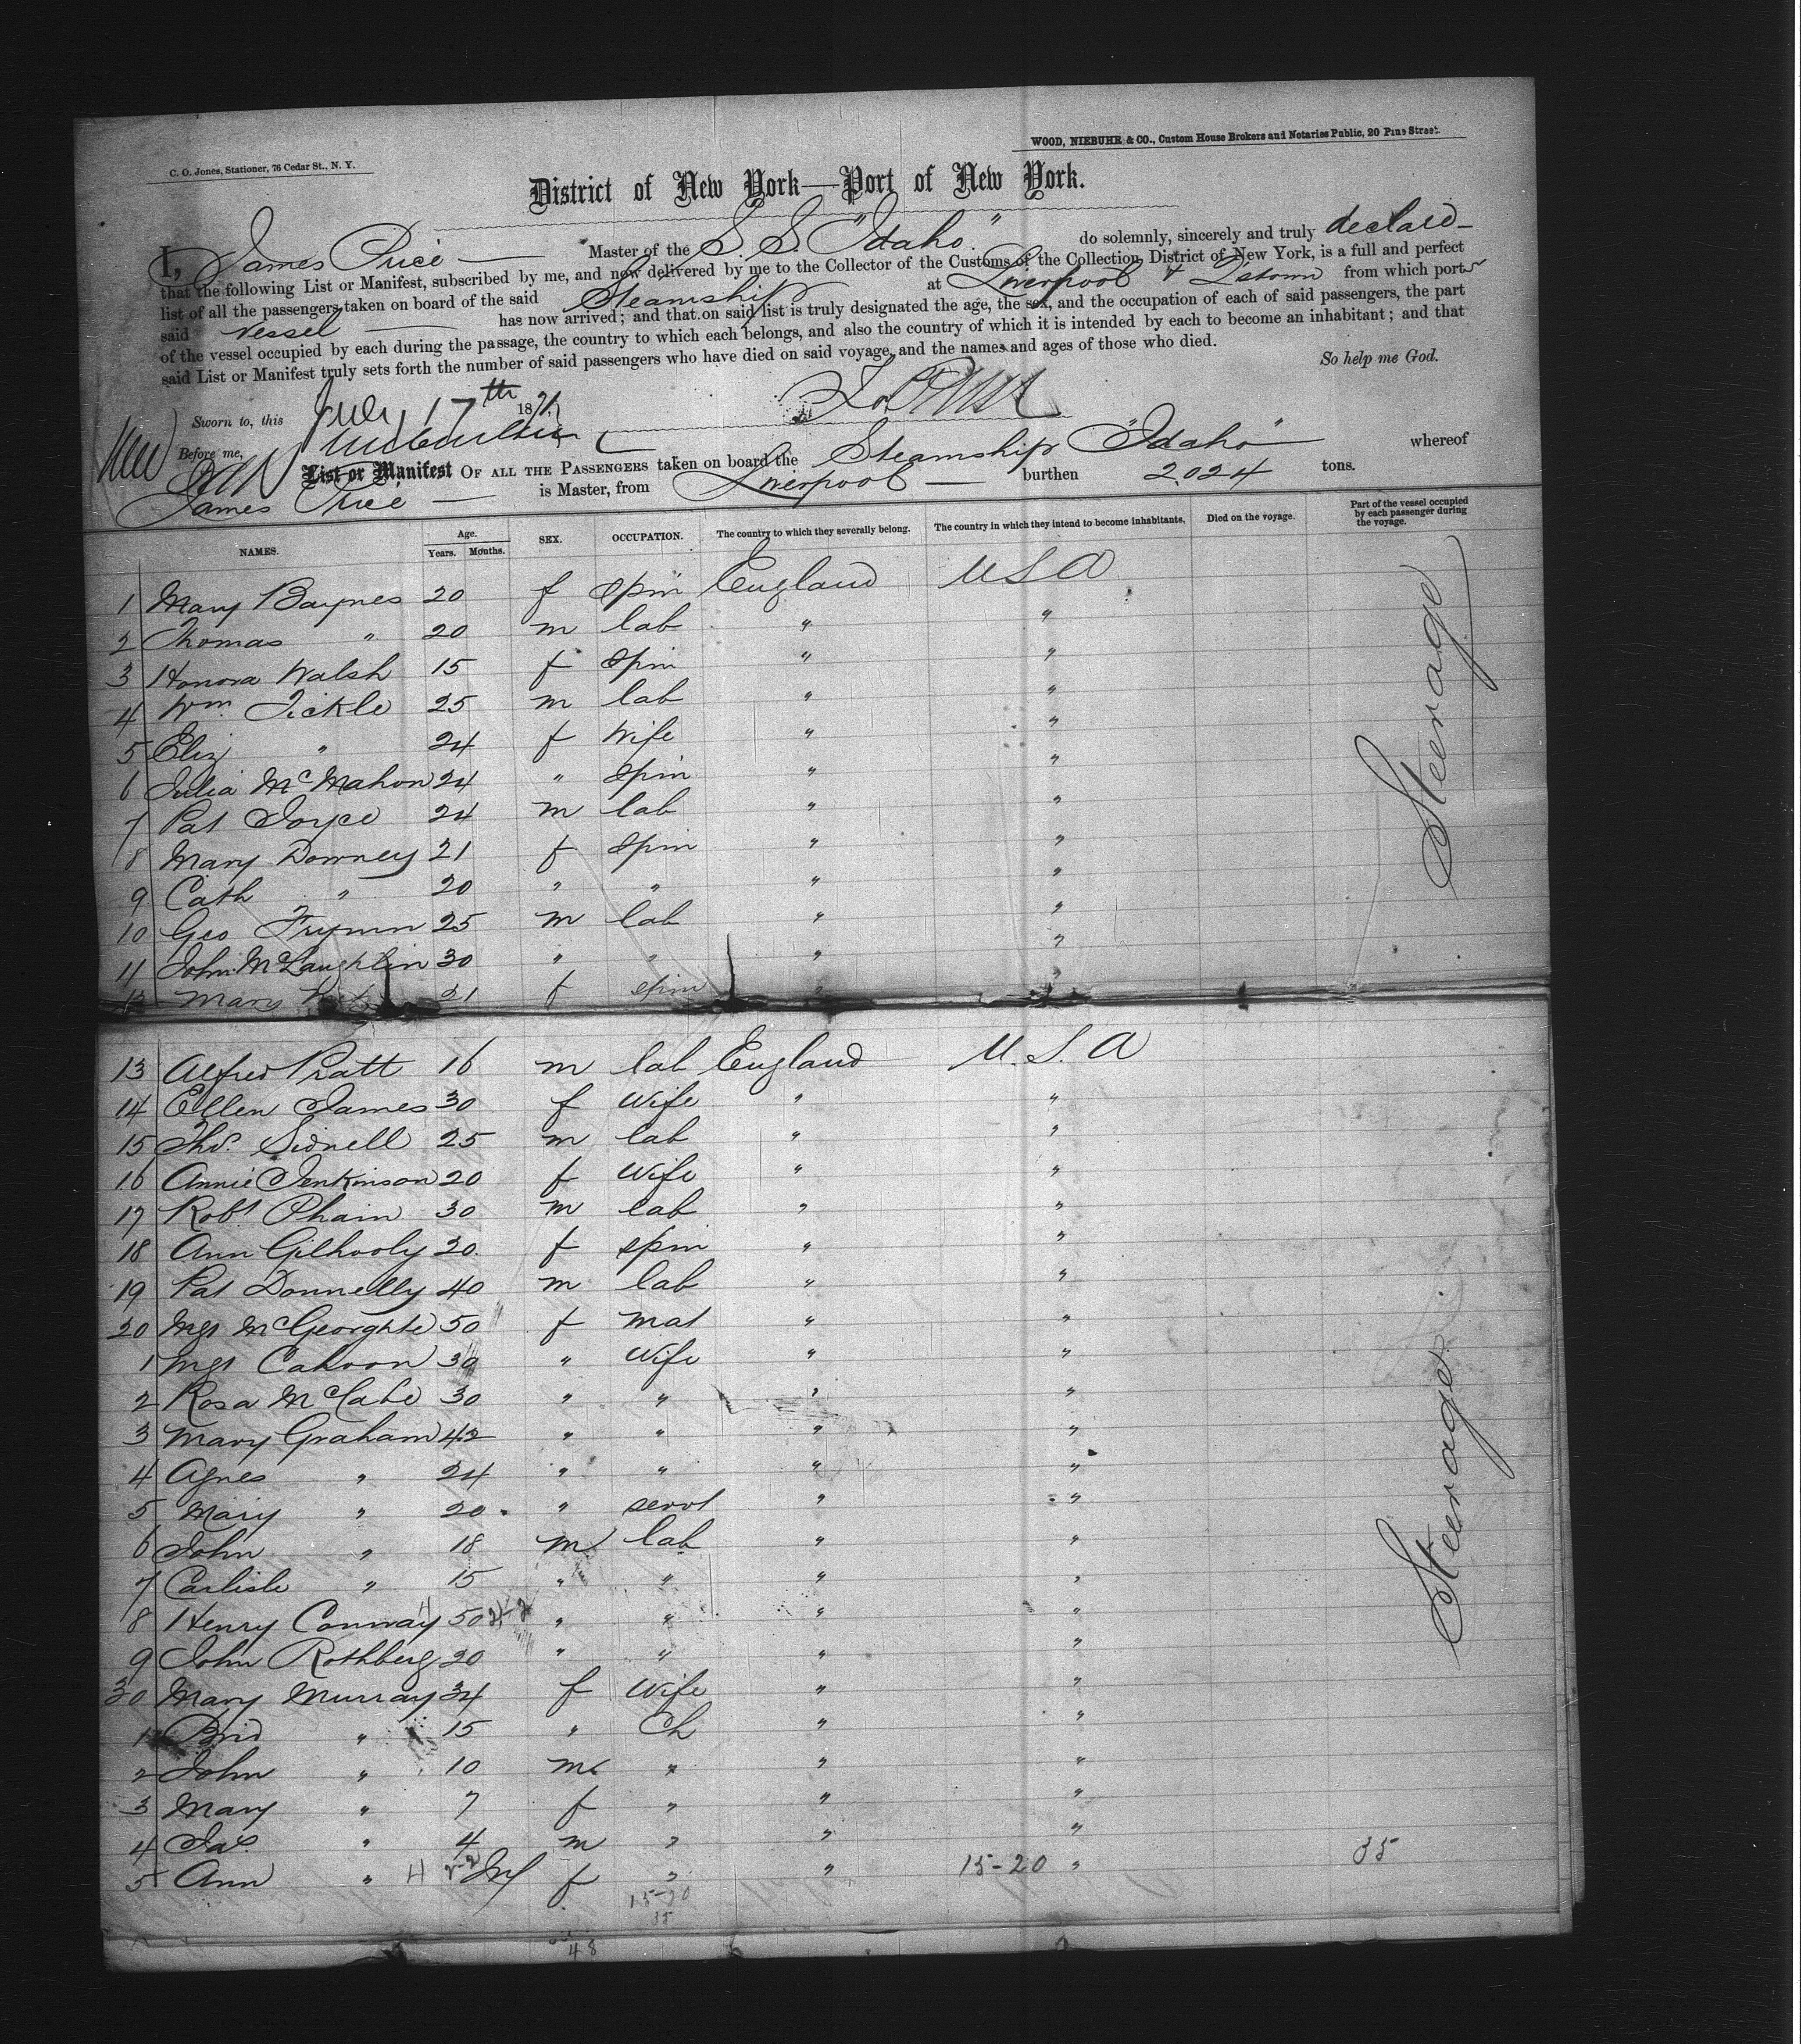 WOOD, NIEBUHR & CO., Custom House Brokers and Notaries Public, 20 Pine Street.
C. O. Jones, Stationer, 76 Cedar St., N. Y.
District of New York—Port of New York.
I, James Price — Master of the S. S. "Idaho" do solemnly, sincerely and truly declare
that the following List or Manifest, subscribed by me, and now delivered by me to the Collector of the Customs of the Collection District of New York, is a full and perfect
list of all the passengers taken on board of the said Steamship at Liverpool & Qstown from which ports
said vessel — has now arrived; and that on said list is truly designated the age, the sex, and the occupation of each of said passengers, the part
of the vessel occupied by each during the passage, the country to which each belongs, and also the country of which it is intended by each to become an inhabitant; and that
said List or Manifest truly sets forth the number of said passengers who have died on said voyage, and the names and ages of those who died.
So help me God.
Sworn to, this July 17th 1871,
Before me,
List or Manifest OF ALL THE PASSENGERS taken on board the Steamship "Idaho" whereof
James Price — is Master, from Liverpool — burthen 2024 tons.
NAMES. Age. Years. Months. SEX. OCCUPATION. The country to which they severally belong. The country in which they intend to become inhabitants. Died on the voyage. Part of the vessel occupied by each passenger during the voyage.
1 Mary Baynes 20 f spin England U S A
2 Thomas " 20 m lab " "
3 Honora Walsh 15 f spin " "
4 Wm. Tickle 25 m lab " "
5 Eliz " 24 f Wife " "
6 Julia McMahon 24 " spin " "
7 Pat Joyce 24 m lab " "
8 Mary Downey 21 f spin " "
9 Cath " 20 " " " "
10 Geo 25 m lab " "
11 John McLaughlin 30 " " " "
12 Mary 21 f spin " "
Steerage
13 Alfred Pratt 16 m lab England U. S. A
14 Ellen James 30 f Wife " "
15 Thos. Sidnell 25 m lab " "
16 Annie Jenkinson 20 f Wife " "
17 Robt Phain 30 m lab " "
18 Ann Gilhooly 20 f spin " "
19 Pat Donnelly 40 m lab " "
20 Mgt McGeorghte 50 f mat " "
1 Mgt Cahoon 30 " Wife " "
2 Rosa McCabe 30 " " " "
3 Mary Graham 42 " " " "
4 Agnes " 24 " " " "
5 Mary " 20 " servt " "
6 John " 18 m lab " "
7 Carlisle " 15 " " " "
8 Henry Conway 50 " " " "
9 John Rothberg 20 " " " "
30 Mary Murray 34 f Wife " "
1 Brid " 15 " Ch " "
2 John " 10 m " " "
3 Mary " 7 f " " "
4 Jas. " 4 m " " "
5 Ann " Inf f " " 15-20 " 35
Steerage
15-20
35
48